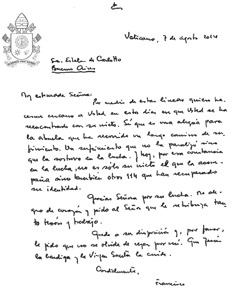 Vaticano, 7 de agosto 2014
Sra. Estela de Carlotto
Buenos Aires
Muy estimada Señora:
Por medio de estas líneas quiero ha-
cerme cercano a Usted en este día en que Usted se ha
reencontrado con su nieto. Sé que es una alegría para
la abuela que ha recorrido un largo camino de su-
frimiento. Un sufrimiento que no la paralizó sino
que la sostuvo en la lucha. Y hoy, por esa constancia
en la lucha, no es sólo su nieto el que la acom-
paña sino también otros 114 que han recuperado
su identidad.
Gracias Señora por su lucha. Me ale-
gro de corazón y pido al Señor que le retribuya tan-
to tesón y trabajo.
Quedo a su disposición y, por favor,
le pido que no se olvide de rezar por mí. Que Jesús
la bendiga y la Virgen Santa la cuide.
Cordialmente,
Francisco